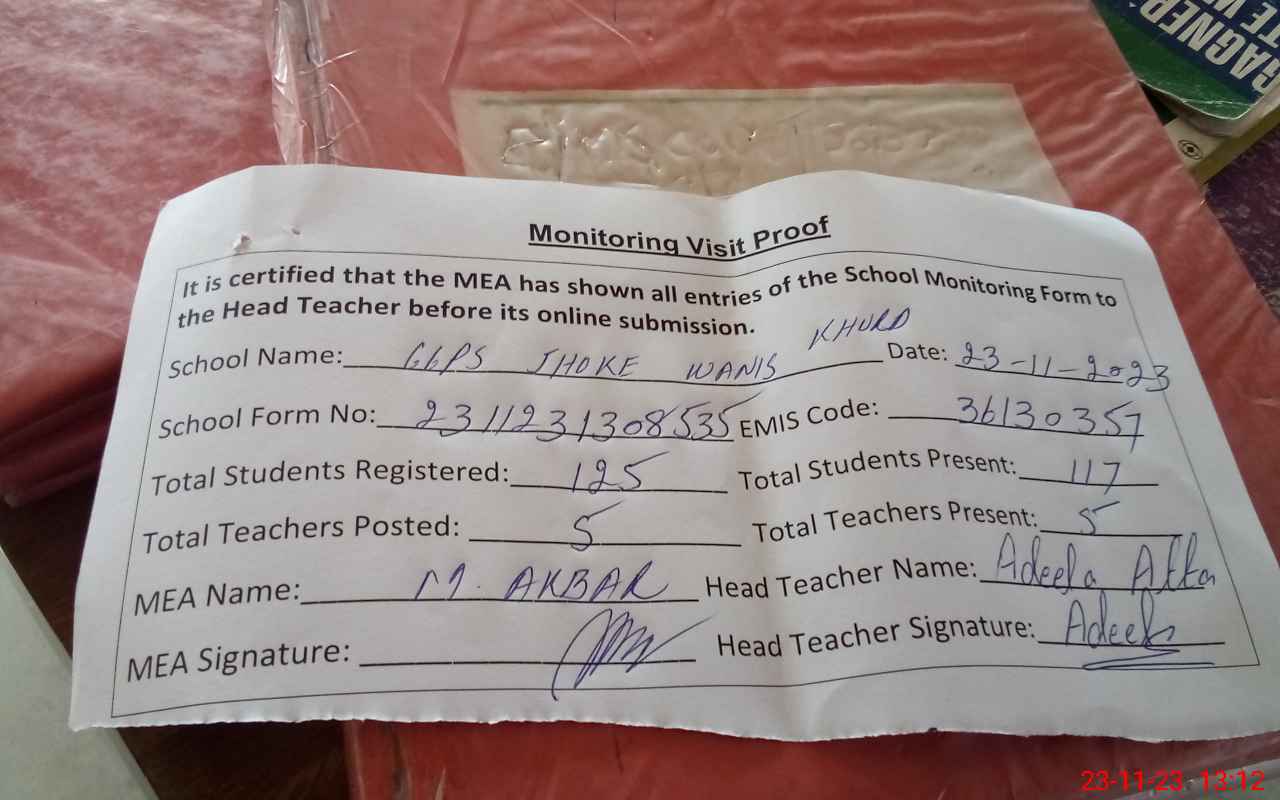 GAGNER
Monitoring Visit Proof
It is certified that the MEA has shown all entries of the School Monitoring Form to
the Head Teacher before its online submission.
School Name: GGPS JHOKE WANIS KHURD Date: 23-11-2023
School Form No: 2311231308535 EMIS Code: 36130357
Total Students Registered: 125 Total Students Present: 117
Total Teachers Posted: 5 Total Teachers Present: 5
MEA Name: M. AKBAR Head Teacher Name: Adeela Atta
MEA Signature: Head Teacher Signature: Adeela
23-11-23 13:12